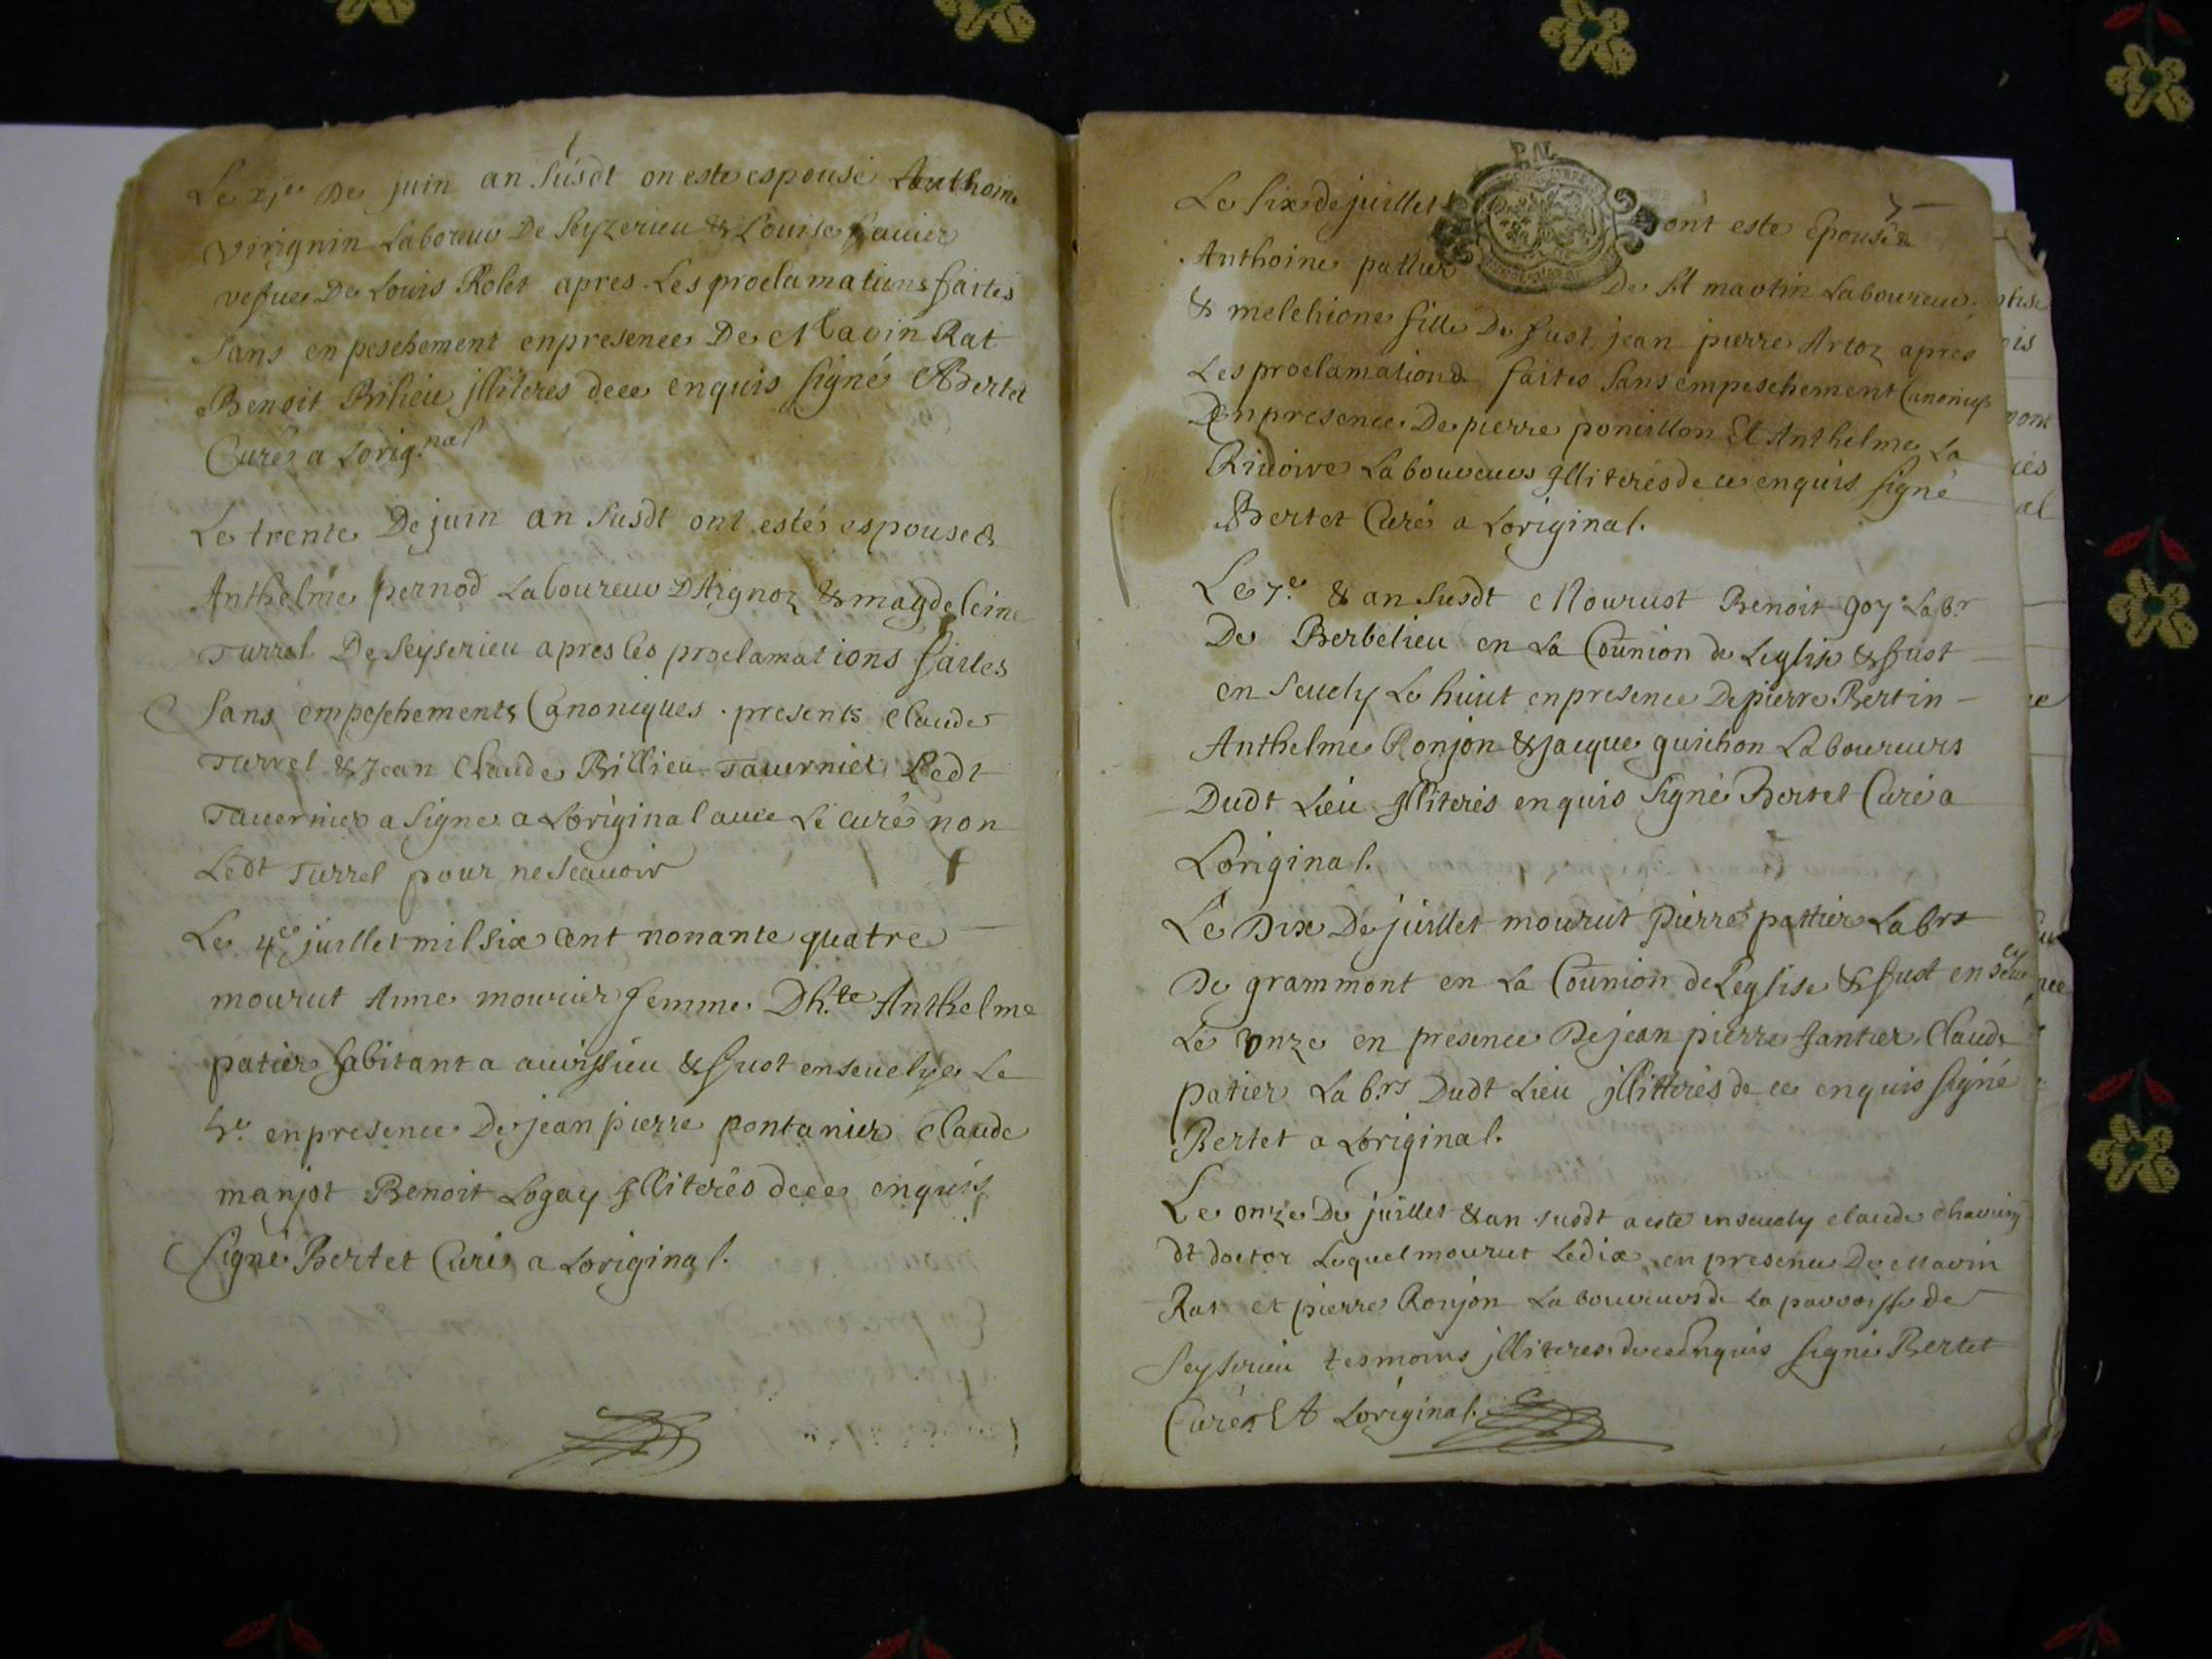 Le xje De juin an susdt on este espousé Anthoine
Virignin Laboreur De Seyzerieu & Louise
vefue De Louis Rolet apres Les proclamations faites
sans enpeschement enpresence De Mavin Rat
Benoit Bilieu jlliteres dece enquis signé Bertet
Curé a Lorignal
Le trente De juin an susdt ont estés espouses
Anthelme pernod Laboureur DAignoz & magdeleine
Turrel De Seyserieu apres les proclamations faites
sans empeschements Canoniques presents Claude
Turrel & Jean Claude Billieu Tauernier Ledt
Tauernier a signe a Loriginal auec Le curé non
Ledt Turrel pour ne scauoir
Le 4e juillet mil six cent nonante quatre
mourut Anne mourier femme Dh.te Anthelme
patier habitant a auissieu & fust enseuelye Le
5e enpresence De jean pierre pontanier claude
manjot Benoit Logay Jlliterés dece enquis
Signé Bertet Curé a Loriginal.
7
Le six de juillet ont esté Epousés
Anthoine pattier De St martin Laboureur
& melchione fille De fust jean pierre Artoz apres
Les proclamations faites sans empeschement Canonique
Enpresence De pierre ponillon Et Anthelme La
Riuoire Laboureurs Jlliterés de ce enquis signé
Bertet Curé a Loriginal.
Le 7e & an susdt Mourust Benoit goy Labr
De Berbelieu en La Coũnion de Leglise & fust
en seuely Le huict enpresence De pierre Bertin
Anthelme Ronjon & jacque guichon Laboureurs
Dudt Lieu Jlliterés enquis Signé Bertet Curé a
Loriginal.
Le Dix De juillet mourut pierre pattier Labrs
De grammont en La Coũnion de Leglise & fust en seuely
Le onze en présence De jean pierre Claude
patier Labrs Dudt Lieu jllitterés de ce enquis signé
Bertet a Loriginal.
Le onze De juillet & an susdt a esté enseuely claude
dt doctor Lequel mourut Ledix en presence De Mavin
Rat et pierre Ronjon Laboureurs de La parroisse de
Seyserieu tesmoins jlliteres dece enquis signé Bertet
Curé A Loriginal.